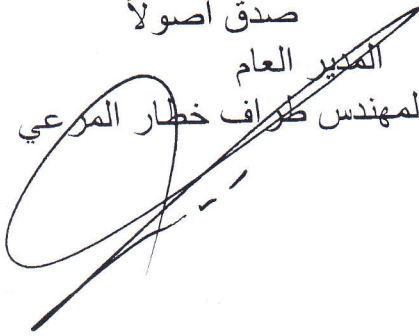 صدق اصولاً
المدير العام
لمهندس طراف خطار المرعي